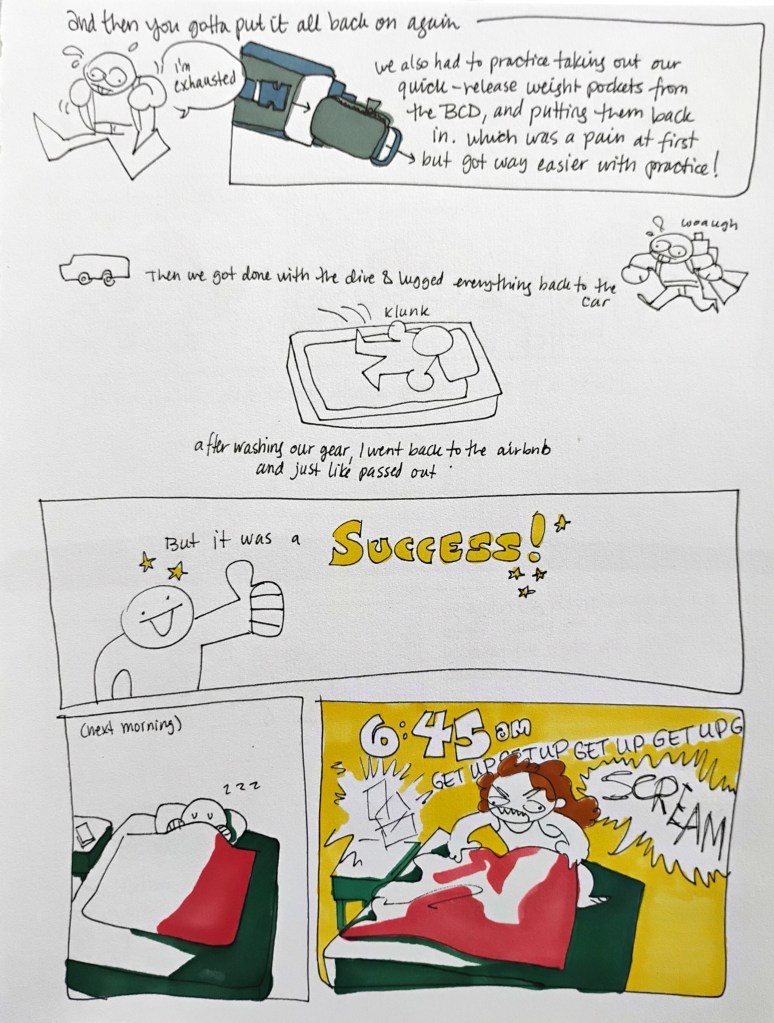 and then you gotta put it all back on again
i'm
exhausted
we also had to practice taking out our
quick-release weight pockets from
the BCD, and putting them back
in. which was a pain at first
but got way easier with practice!
woaugh
Then we got done with the dive & lugged everything back to the
car
Klunk
after washing our gear, I went back to the airbnb
and just like passed out
But it was a SUCCESS!
(next morning)
z z z
6:45 am
GET UP GET UP GET UP GET UP G
SCREAM